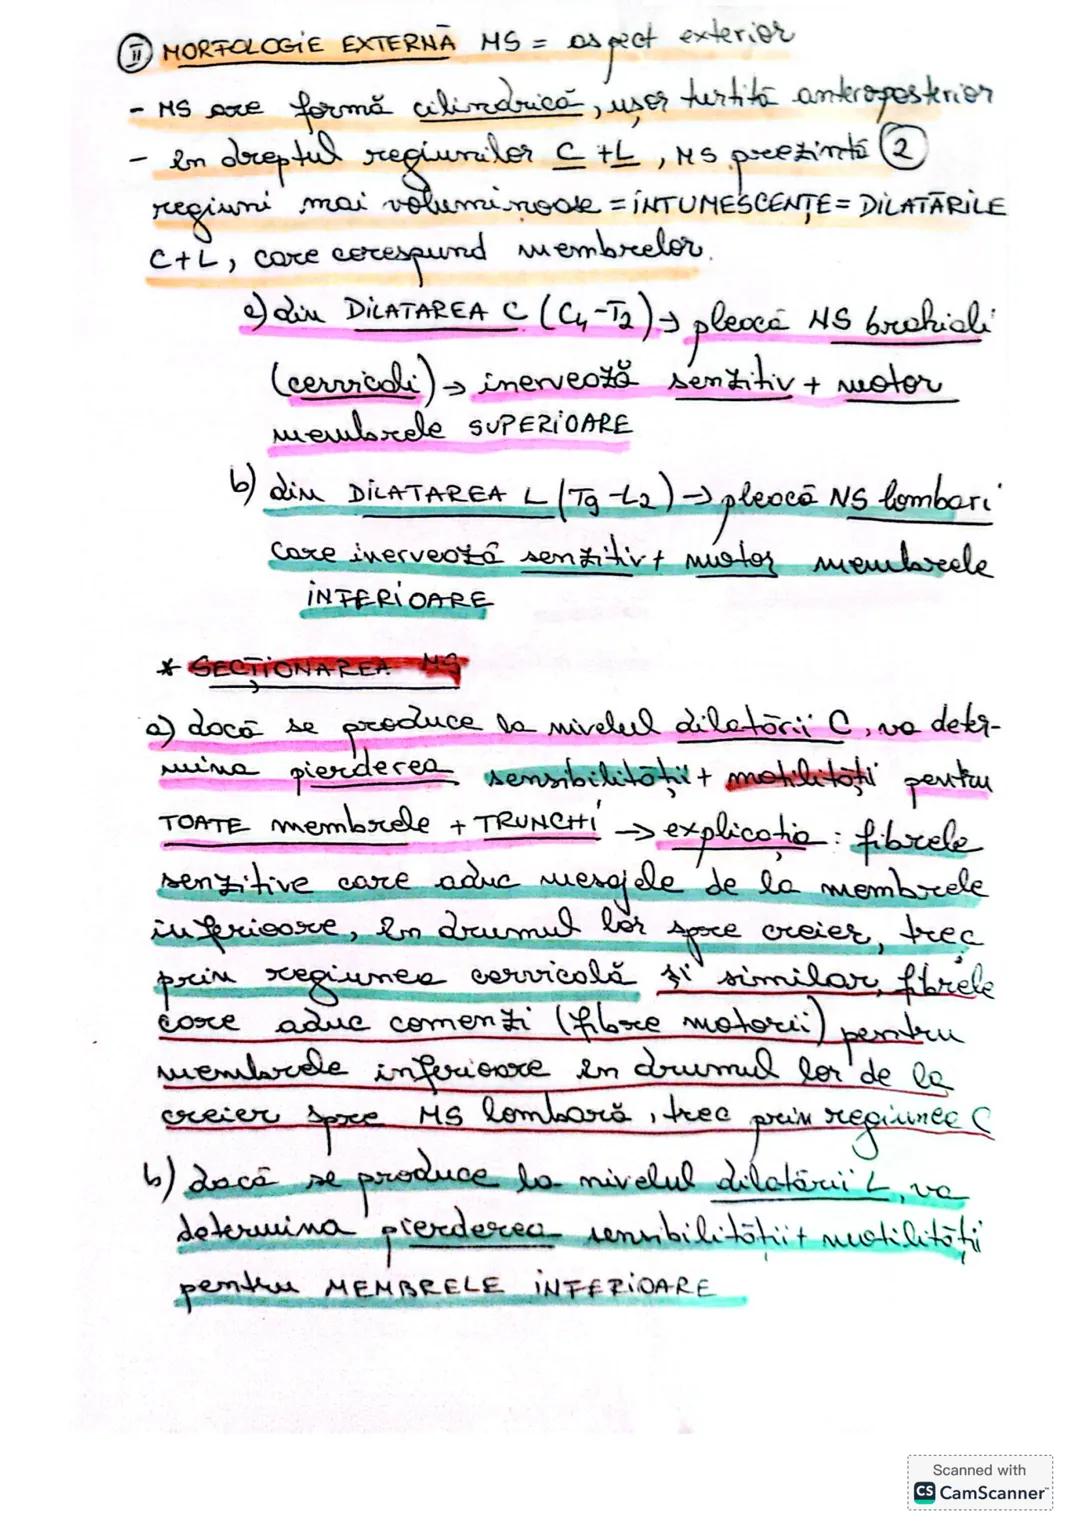 II MORFOLOGIE EXTERNĂ MS = aspect exterior
- MS are formă cilindrică, ușor turtită anteroposterior
- în dreptul regiunilor C + L, MS prezintă 2
regiuni mai voluminoase = INTUMESCENȚE = DILATĂRILE
C+L, care corespund membrelor.
a) din DILATAREA C (C4-T2) → pleacă NS brahiali
(cervicali) → inervează senzitiv + motor
membrele SUPERIOARE
b) din DILATAREA L (T9-L2) → pleacă NS lombari
care inervează senzitiv + motor membrele
INFERIOARE
* SECȚIONAREA MS
a) dacă se produce la nivelul dilatării C, va deter-
mina pierderea sensibilității + motilității pentru
TOATE membrele + TRUNCHI → explicația : fibrele
senzitive care aduc mesajele de la membrele
inferioare, în drumul lor spre creier, trec
prin regiunea cervicală și similar, fibrele
care aduc comenzi (fibre motorii) pentru
membrele inferioare în drumul lor de la
creier spre MS lombară, trec prin regiunea C
b) dacă se produce la nivelul dilatării L, va
determina pierderea sensibilității + motilității
pentru MEMBRELE INFERIOARE
Scanned with
CS CamScanner